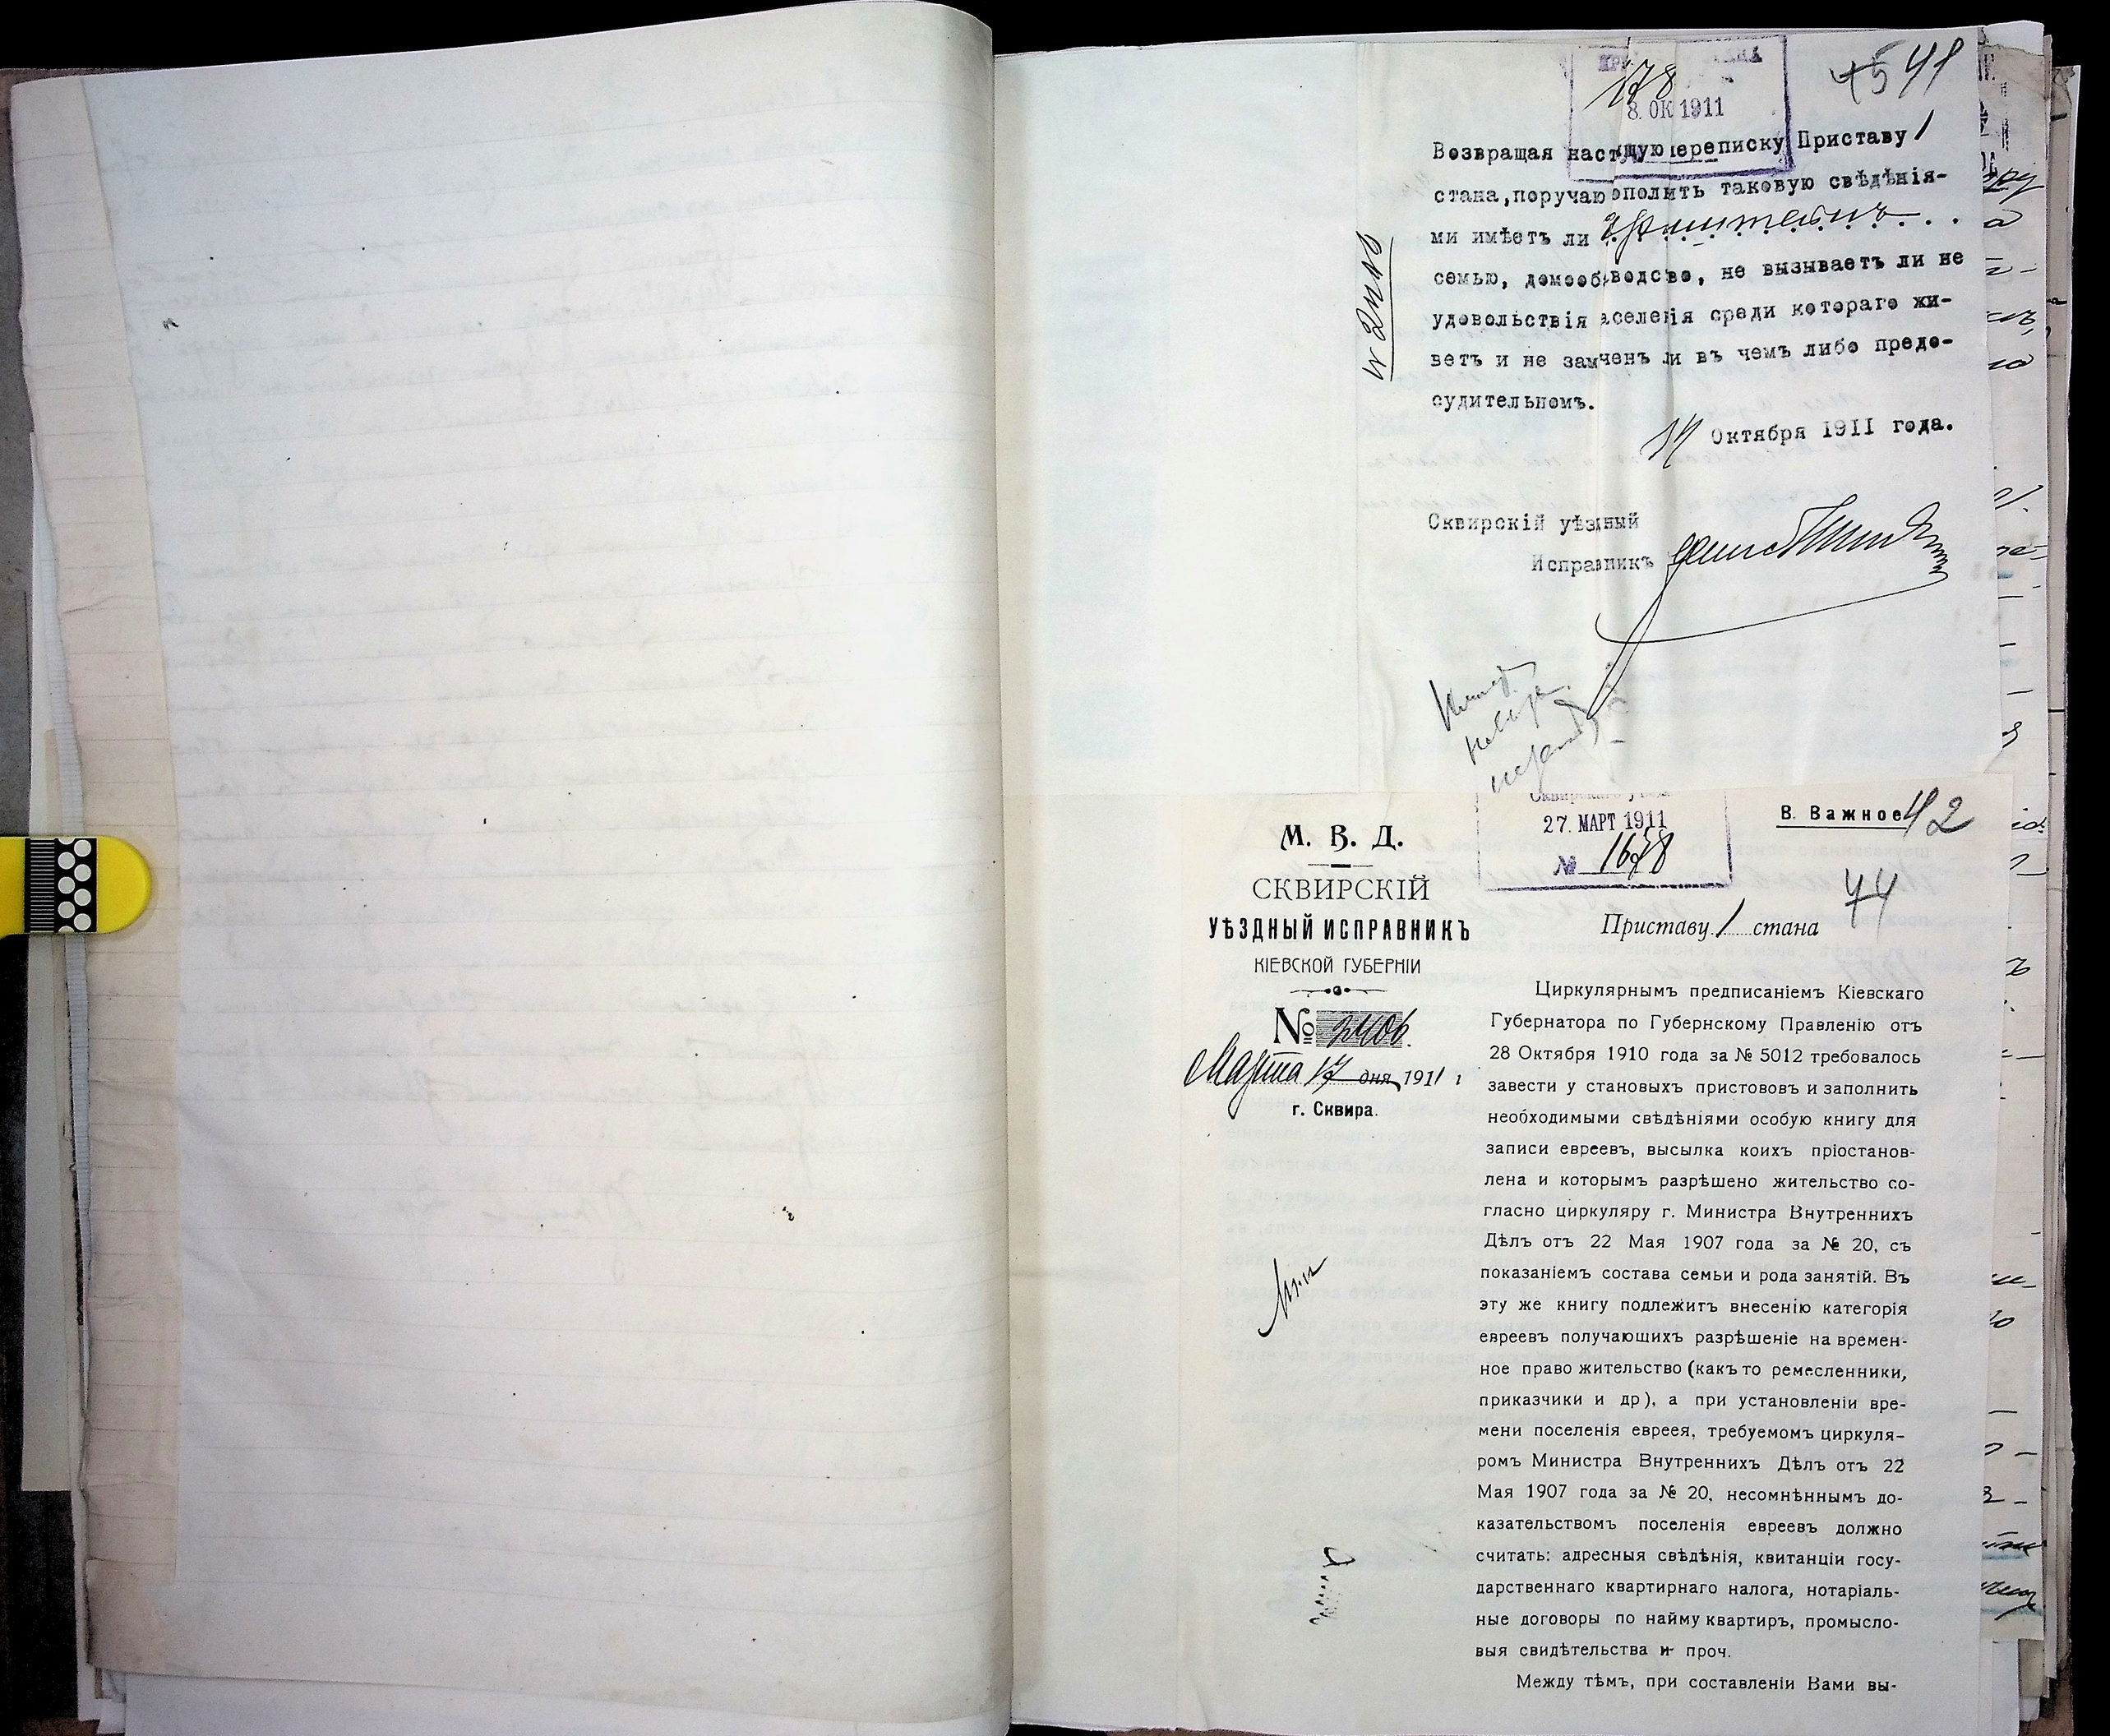 45 41
178
8. ОК 1911
Возвращая наст щую ереписку Приставу 1
стана, поручаю ополить таковую свѣдѣнія-
ми имѣетъ ли
семью, домооб водсво, не вызываетъ ли не
удовольствія аселенія среди котораго жи-
ветъ и не замченъ ли въ чемъ либо предо-
судительномъ.
14 Октября 1911 года.
Сквирскій уѣздный
Исправникъ
В. Важное 42
27. МАРТ 1911
№ 1678
44
М. В. Д.
СКВИРСКІЙ
УѢЗДНЫЙ ИСПРАВНИКЪ
КІЕВСКОЙ ГУБЕРНІИ
№ 2406.
Марта 17 дня 1911 г
г. Сквира.
Приставу 1 стана
Циркулярнымъ предписаніемъ Кіевскаго
Губернатора по Губернскому Правленію отъ
28 Октября 1910 года за № 5012 требовалось
завести у становыхъ пристововъ и заполнить
необходимыми свѣдѣніями особую книгу для
записи евреевъ, высылка коихъ пріостанов-
лена и которымъ разрѣшено жительство со-
гласно циркуляру г. Министра Внутреннихъ
Дѣлъ отъ 22 Мая 1907 года за № 20, съ
показаніемъ состава семьи и рода занятій. Въ
эту же книгу подлежитъ внесенію категорія
евреевъ получающихъ разрѣшеніе на времен-
ное право жительство (какъ то ремесленники,
приказчики и др), а при установленіи вре-
мени поселенія еврея, требуемомъ циркуля-
ромъ Министра Внутреннихъ Дѣлъ отъ 22
Мая 1907 года за № 20, несомнѣннымъ до-
казательствомъ поселенія евреевъ должно
считать: адресныя свѣдѣнія, квитанціи госу-
дарственнаго квартирнаго налога, нотаріаль-
ные договоры по найму квартиръ, промысло-
выя свидѣтельства и проч.
Между тѣмъ, при составленіи Вами вы-